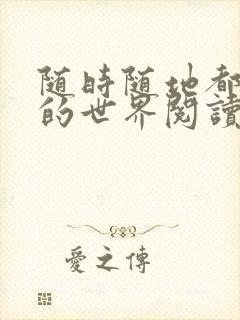 随時随地都
的世界閱讀
愛之傳